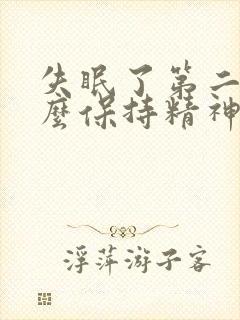 失眠了第二
麼保持精神
浮萍游子客